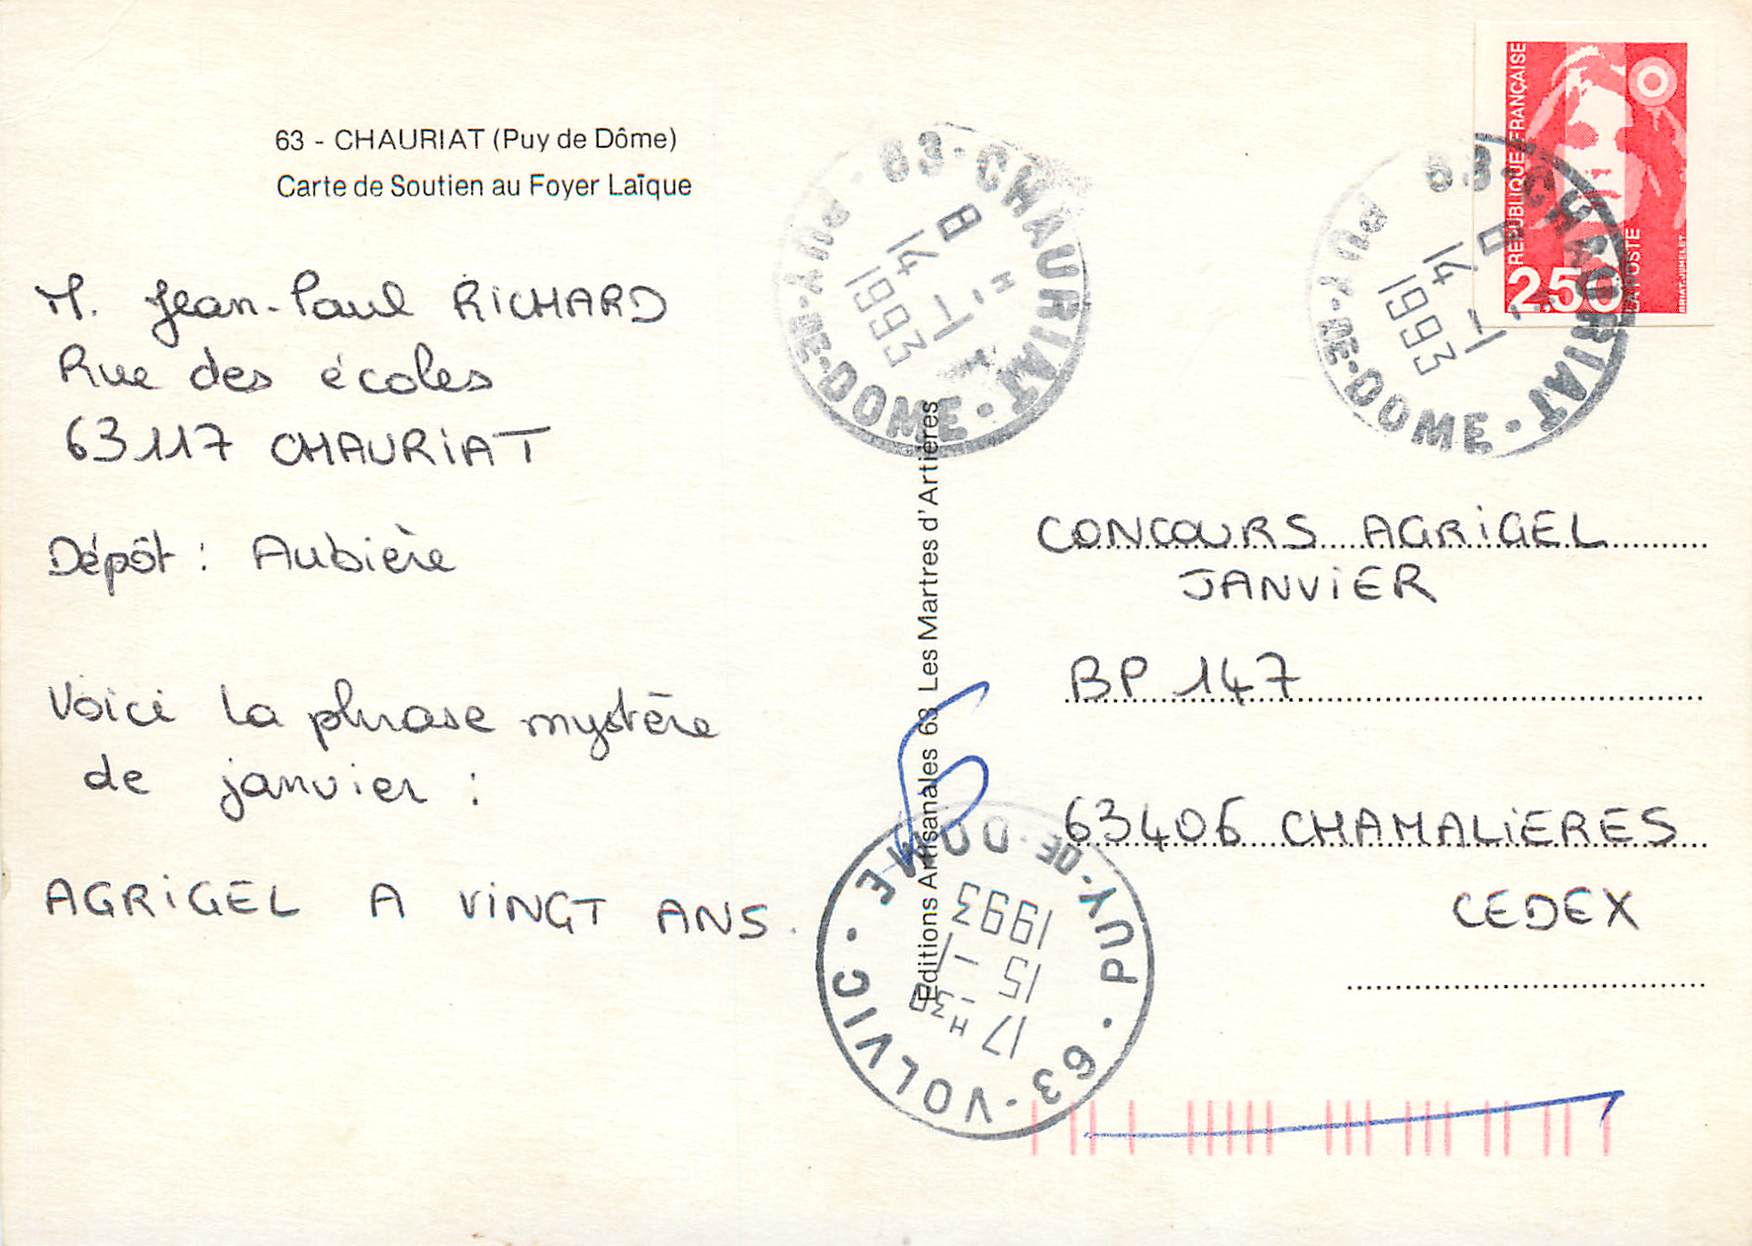 63 - CHAURIAT (Puy de Dôme)
Carte de Soutien au Foyer Laïque
M. Jean-Paul RICHARD
Rue des écoles
63117 CHAURIAT
Dépôt : Aubière
Voici la phrase mystère
de janvier :
AGRIGEL A VINGT ANS.
Editions Artisanales 63 Les Martres d'Artières
63-CHAURIAT · PUY-DE-DOME ·
14 -1-
1993
RÉPUBLIQUE FRANÇAISE
2,50
LA POSTE
BRIAT-JUMELET
63-CHAURIAT · PUY-DE-DOME ·
14 -1-
1993
CONCOURS AGRIGEL
JANVIER
BP 147
63406 CHAMALIERES
CEDEX
63-VOLVIC · PUY-DE-DOME ·
17 H 30
15 -1-
1993